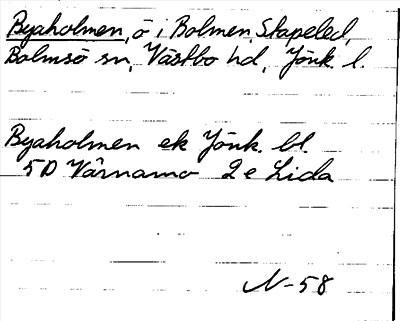 Byaholmen, ö i Bolmen, Stapeled,
Bolmsö sn, Västbo hd, Jönk. l.
Byaholmen ek Jönk. bl.
5D Värnamo 2e Lida
N-58